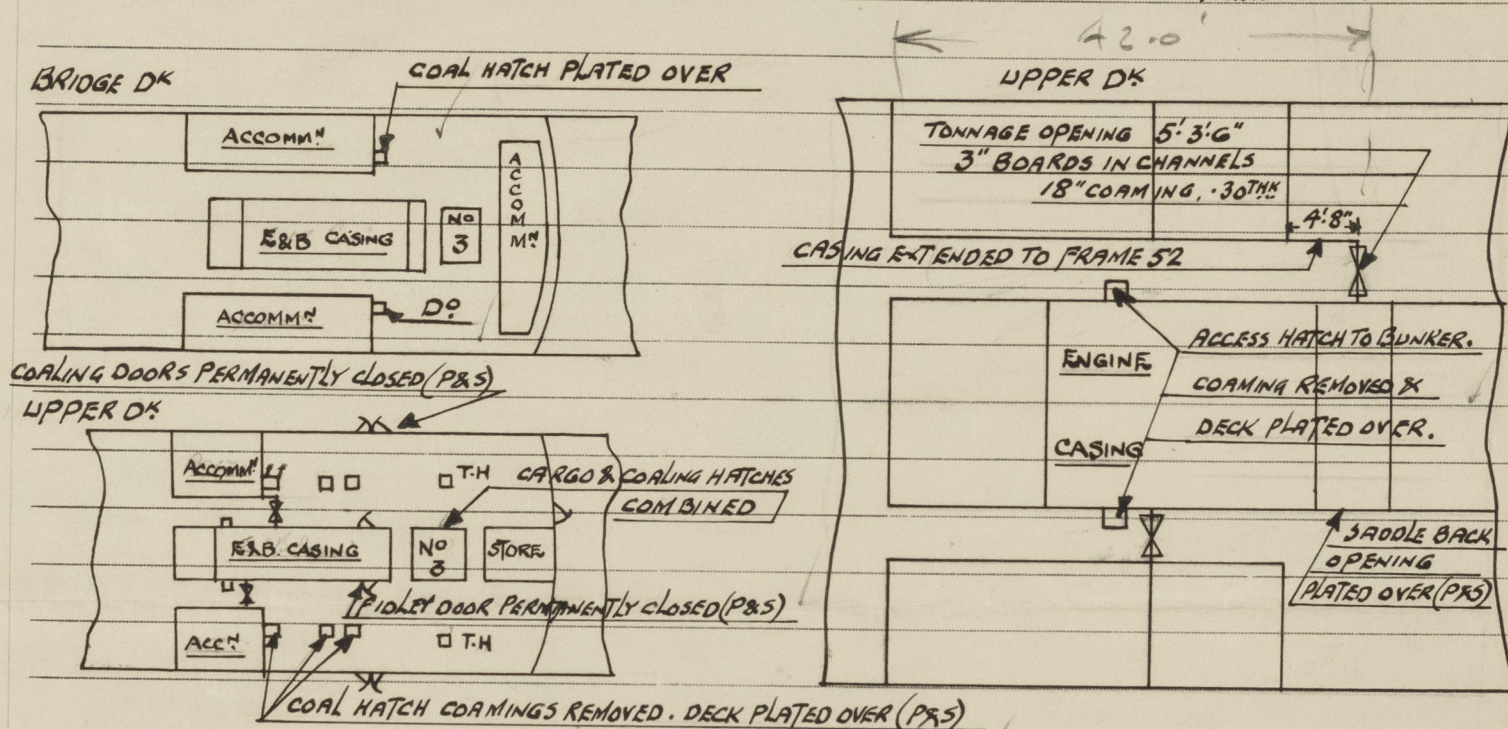 BRIDGE DK
COAL HATCH PLATED OVER
ACCOMMN
E&B CASING
No
3
ACCOMMN
ACCOMMN
Do
COALING DOORS PERMANENTLY CLOSED (P&S)
UPPER DK
ACCOMMN
T.H
CARGO & COALING HATCHES
COMBINED
E&B. CASING
No
3
STORE
FIDLEY DOOR PERMANENTLY CLOSED (P&S)
ACCN
T.H
COAL HATCH COAMINGS REMOVED. DECK PLATED OVER (P&S)
42.0'
UPPER DK
TONNAGE OPENING 5'·3'·6"
3" BOARDS IN CHANNELS
18" COAMING, ·30 THK
4'·8"
CASING EXTENDED TO FRAME 52
ENGINE
CASING
ACCESS HATCH TO BUNKER.
COAMING REMOVED &
DECK PLATED OVER.
SADDLE BACK
OPENING
PLATED OVER (P&S)